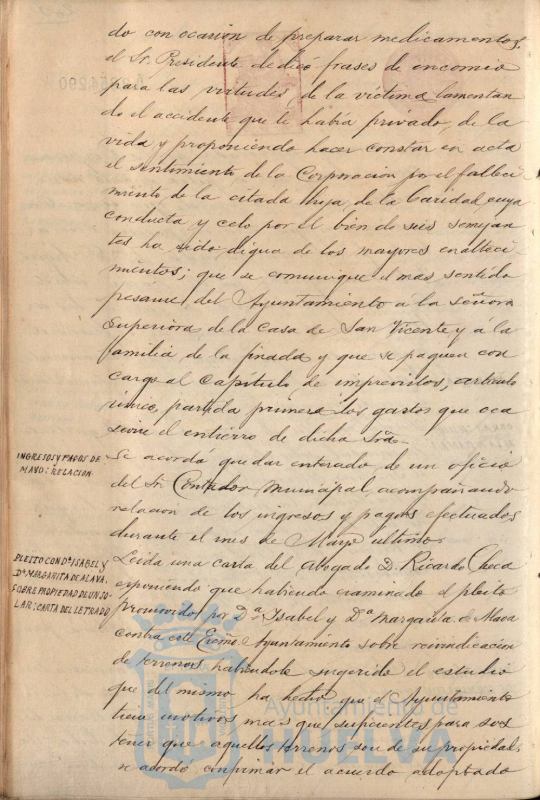 do con ocasion de preparar medicamentos.
el Sr. Presidente dedicó frases de encomio
para las virtudes de la víctima lamentan
do el accidente que le había privado de la
vida y proponiendo hacer constar en acta
el sentimiento de la Corporación por el falleci-
miento de la citada hija de la Caridad cuya
conducta y celo por el bien de seis semejan
tes ha sido digna de los mayores enalteci-
mientos; que se comunique el mas sentido
pesame del Ayuntamiento a la señora
Superiora de la Casa de San Vicente y á la
familia de la finada y que se paguen con
cargo al Capítulo de imprevistos, artículo
único, partida primera los gastos que oca
sione el entierro de dicha Sra.
INGRESOS Y PAGOS DE
MAYO: RELACION
Se acordó quedar enterado de un oficio
del Sr. Contador Municipal, acompañando
relacion de los ingresos y pagos efectuados
durante el mes de Mayo ultimo.
PLEITO CON Dª ISABEL Y
Dª MARGARITA DE ALAVA,
SOBRE PROPIEDAD DE UN SO-
LAR; CARTA DEL LETRADO
Leida una carta del abogado D. Ricardo Checa
exponiendo que habiendo examinado el pleito
promovido por Dª Isabel y Dª Margarita de Alava
contra este Excmo. Ayuntamiento sobre reivindicacion
de terrenos, habiendole sugerido el estudio
que del mismo ha hecho que el Ayuntamiento
tiene motivos mas que suficientes para sos
tener que aquellos terrenos son de su propiedad,
se acordó confirmar el acuerdo adoptado
Ayuntamiento de
HUELVA